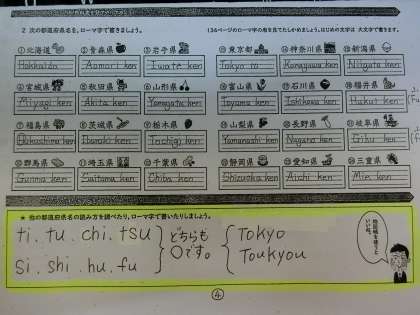 2 次の都道府県名を、ローマ字で書きましょう。
①北海道 ②青森県 ③岩手県 ⑬東京都 ⑭神奈川県 ⑮新潟県
Hokkaidō Aomori ken Iwate ken Tokyo to Kanagawa ken Niigata ken
④宮城県 ⑤秋田県 ⑥山形県 ⑯富山県 ⑰石川県 ⑱福井県
Miyagi ken Akita ken Yamagata ken Toyama ken Ishikawa ken Hukui ken
⑦福島県 ⑧茨城県 ⑨栃木県 ⑲山梨県 ⑳長野県 ㉑岐阜県
Hukushima ken Ibaraki ken Tochigi ken Yamanashi ken Nagano ken Gihu ken
⑩群馬県 ⑪埼玉県 ⑫千葉県 ㉒静岡県 ㉓愛知県 ㉔三重県
Gunma ken Saitama ken Chiba ken Shizuoka ken Aichi ken Mie ken
★ 他の都道府県名の読み方を調べたり、ローマ字で書いたりしましょう。
ti . tu . chi . tsu
si . shi . hu . fu
どちらも
〇です。
Tokyo
Toukyou
地図帳を使うと
いいね。
④